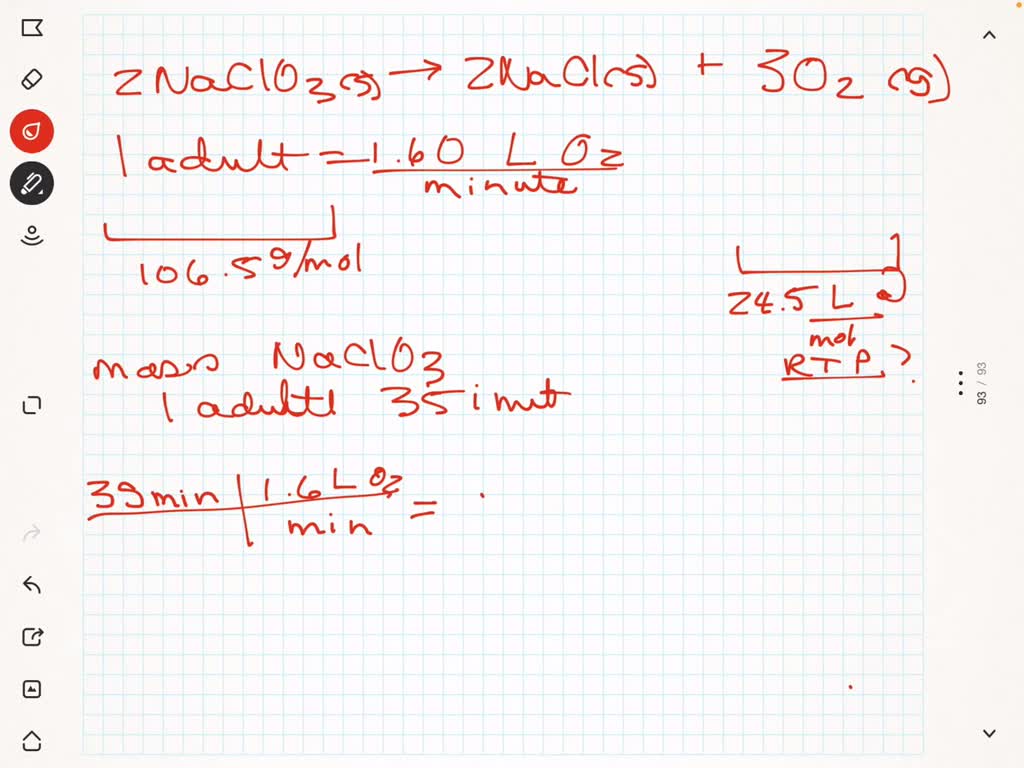 2NaClO3(s) → 2NaCl(s) + 3O2(g)
1 adult = 1.60 L O2
minute
106.5 g/mol
24.5 L
mol
RTP?
mass NaClO3
1 adult 35
39 min | 1.6 L O2 =
min
93 / 93